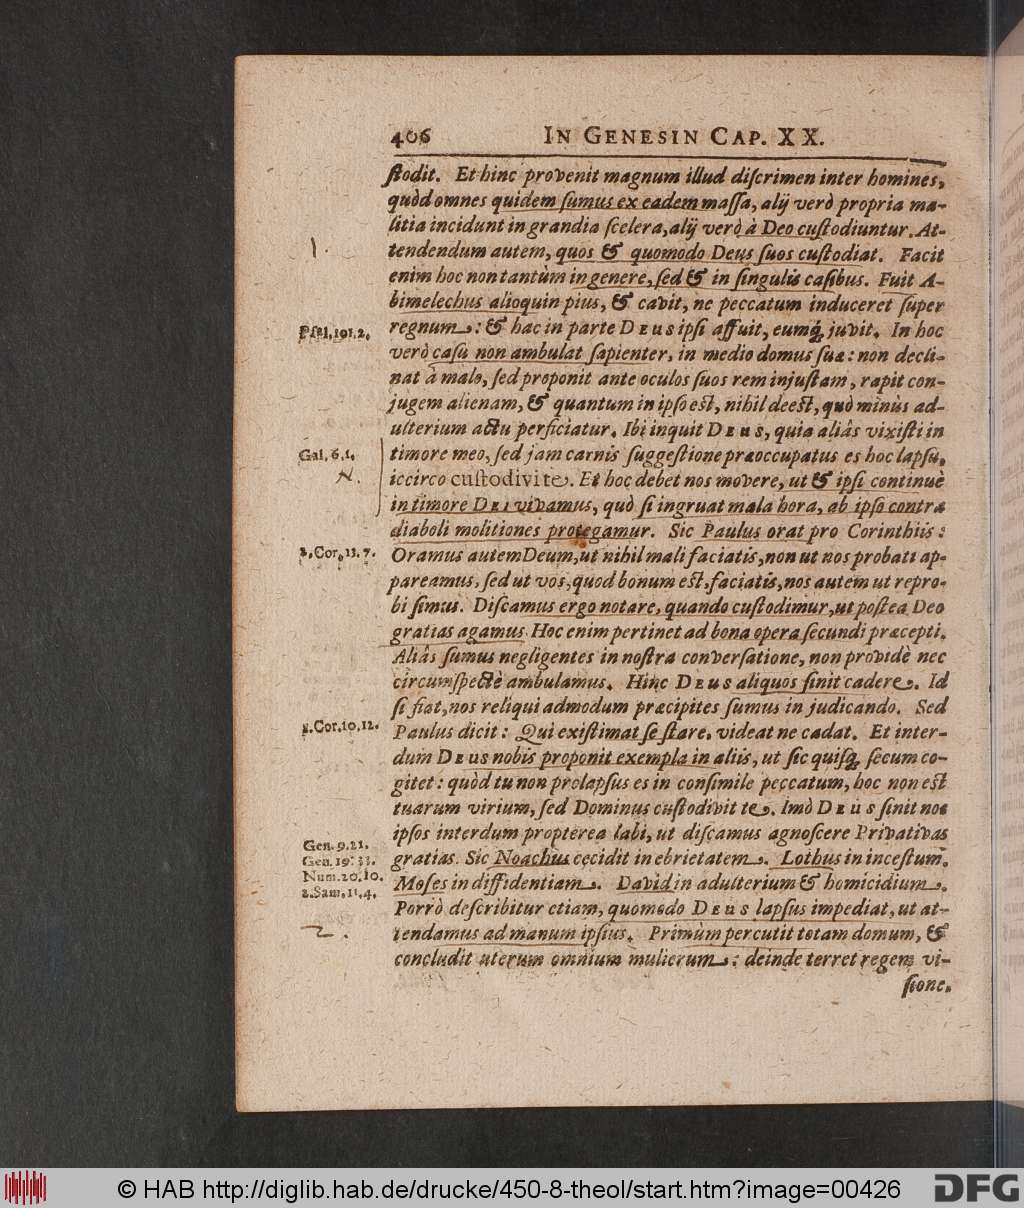 406 IN GENESIN CAP. XX.
ſtodit. Et hinc provenit magnum illud diſcrimen inter homines,
quòd omnes quidem ſumus ex eadem maſſa, alij verò propria ma-
litia incidunt in grandia ſcelera, alij verò à Deo cuſtodiuntur. At-
1.
tendendum autem, quos & quomodo Deus ſuos cuſtodiat. Facit
enim hoc non tantùm in genere, ſed & in ſingulis caſibus. Fuit A-
bimelechus alioquin pius, & cavit, ne peccatum induceret ſuper
Pſal. 101. 2.
regnum: & hac in parte DEUS ipſi affuit, eumq́; juvit. In hoc
verò caſu non ambulat ſapienter, in medio domus ſuæ: non decli-
nat à malo, ſed proponit ante oculos ſuos rem injuſtam, rapit con-
jugem alienam, & quantum in ipſo eſt, nihil deeſt, quò minùs ad-
ulterium actu perficiatur. Ibi inquit DEUS, quia aliâs vixiſti in
Gal. 6. 1.
timore meo, ſed jam carnis ſuggeſtione præoccupatus es hoc lapſu,
iccirco cuſtodivi te. Et hoc debet nos movere, ut & ipſi continuè
in timore DEI vivamus, quò ſi ingruat mala hora, ab ipſo contra
diaboli molitiones protegamur. Sic Paulus orat pro Corinthiis:
2. Cor. 13. 7.
Oramus autem Deum, ut nihil mali faciatis, non ut nos probati ap-
pareamus, ſed ut vos, quod bonum eſt, faciatis, nos autem ut repro-
bi ſimus. Diſcamus ergo notare, quando cuſtodimur, ut poſtea Deo
gratias agamus. Hoc enim pertinet ad bona opera ſecundi præcepti.
Aliâs ſumus negligentes in noſtra converſatione, non providè nec
circumſpectè ambulamus. Hinc DEUS aliquos ſinit cadere. Id
ſi fiat, nos reliqui admodum præcipites ſumus in judicando. Sed
1. Cor. 10. 12.
Paulus dicit: Qui exiſtimat ſe ſtare, videat ne cadat. Et inter-
dum DEUS nobis proponit exempla in aliis, ut ſic quiſq; ſecum co-
gitet: quòd tu non prolapſus es in conſimile peccatum, hoc non eſt
tuarum virium, ſed Dominus cuſtodivit te. Imò DEUS ſinit nos
ipſos interdum propterea labi, ut diſcamus agnoſcere Privativas
Gen. 9. 21.
Gen. 19. 33.
Num. 20. 10.
2. Sam. 11. 4.
gratias. Sic Noachus cecidit in ebrietatem. Lothus in inceſtum.
Moſes in diffidentiam. David in adulterium & homicidium.
Porrò deſcribitur etiam, quomodo DEUS lapſus impediat, ut at-
2.
tendamus ad manum ipſius. Primùm percutit totam domum, &
concludit uterum omnium mulierum: deinde terret regem vi-
ſione.
© HAB http://diglib.hab.de/drucke/450-8-theol/start.htm?image=00426
DFG